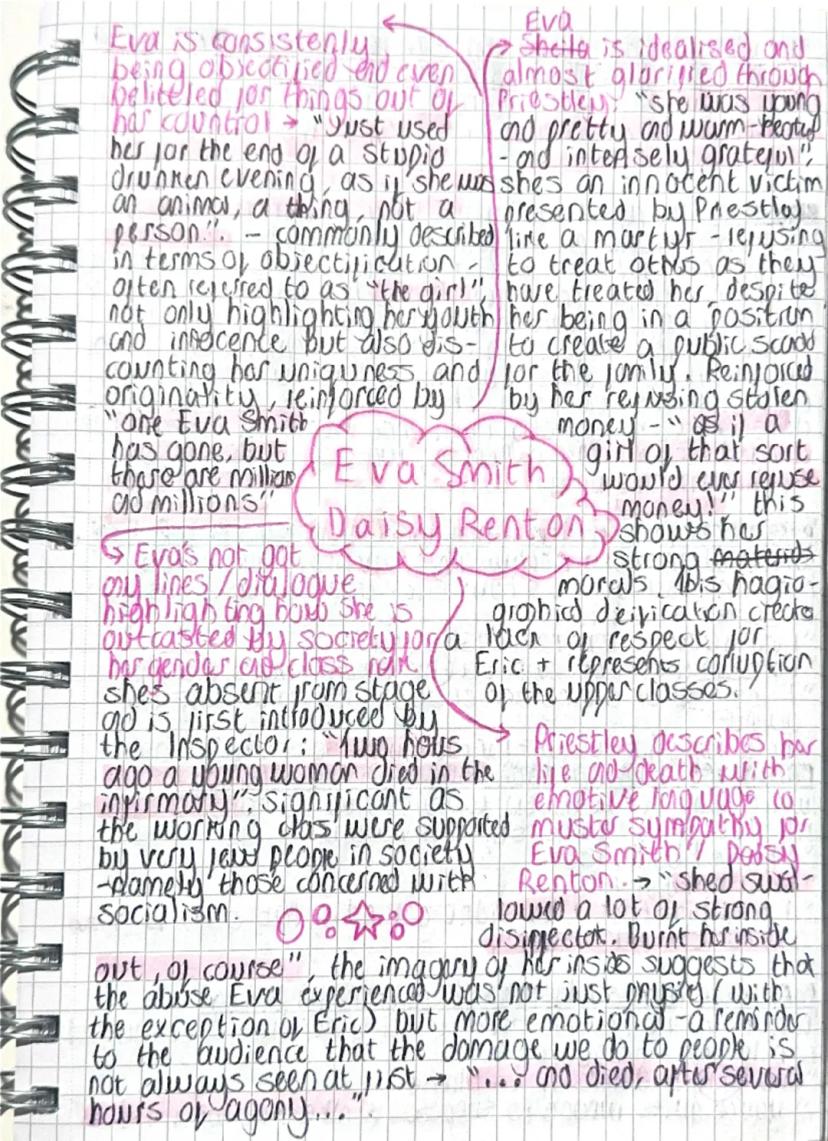 Eva is consistenly
being objectified and even
beliteled for things out of
her countrol → "Just used
her for the end of a stupid
drunken evening, as if she was
an animal, a thing, not a
person". - commonly described
in terms of objectification -
often referred to as "the girl",
not only highlighting her youth
and innocence but also dis-
counting her uniquness and
originality, reinforced by
"one Eva Smith
has gone, but
there are million
and millions"
Eva
Sheila is idealised and
almost glorified through
Priestley: "she was young
and pretty and warm-hearted
- and intensely grateful",
shes an innocent victim
presented by Priestley
like a martyr - refusing
to treat others as they
have treated her, despite
her being in a position
to create a public scandal
for the family. Reinforced
by her refusing stolen
money - "as if a
girl of that sort
would ever refuse
money!" this
shows her
strong materials
morals. This hagio-
graphical deification creates
a lack of respect for
Eric + represents corruption
of the upper classes.
Eva Smith
Daisy Renton
Eva's not got
any lines / dialogue
highlighting how she is
outcasted by society for
her gender and class
she's absent from stage
and is first introduced by
the Inspector: "Two hours
ago a young woman died in the
infirmary". Significant as
the working class were supported
by very few people in society
-namely those concerned with
socialism.
Priestley describes her
life and death with
emotive language to
muster sympathy for
Eva Smith / Daisy
Renton. → "shed swal-
lowed a lot of strong
disinfectant. Burnt her inside
out, of course", the imagery of her insides suggests that
the abuse Eva experienced was not just physical (with
the exception of Eric) but more emotional - a reminder
to the audience that the damage we do to people is
not always seen at first → "... and died, after several
hours of agony..."